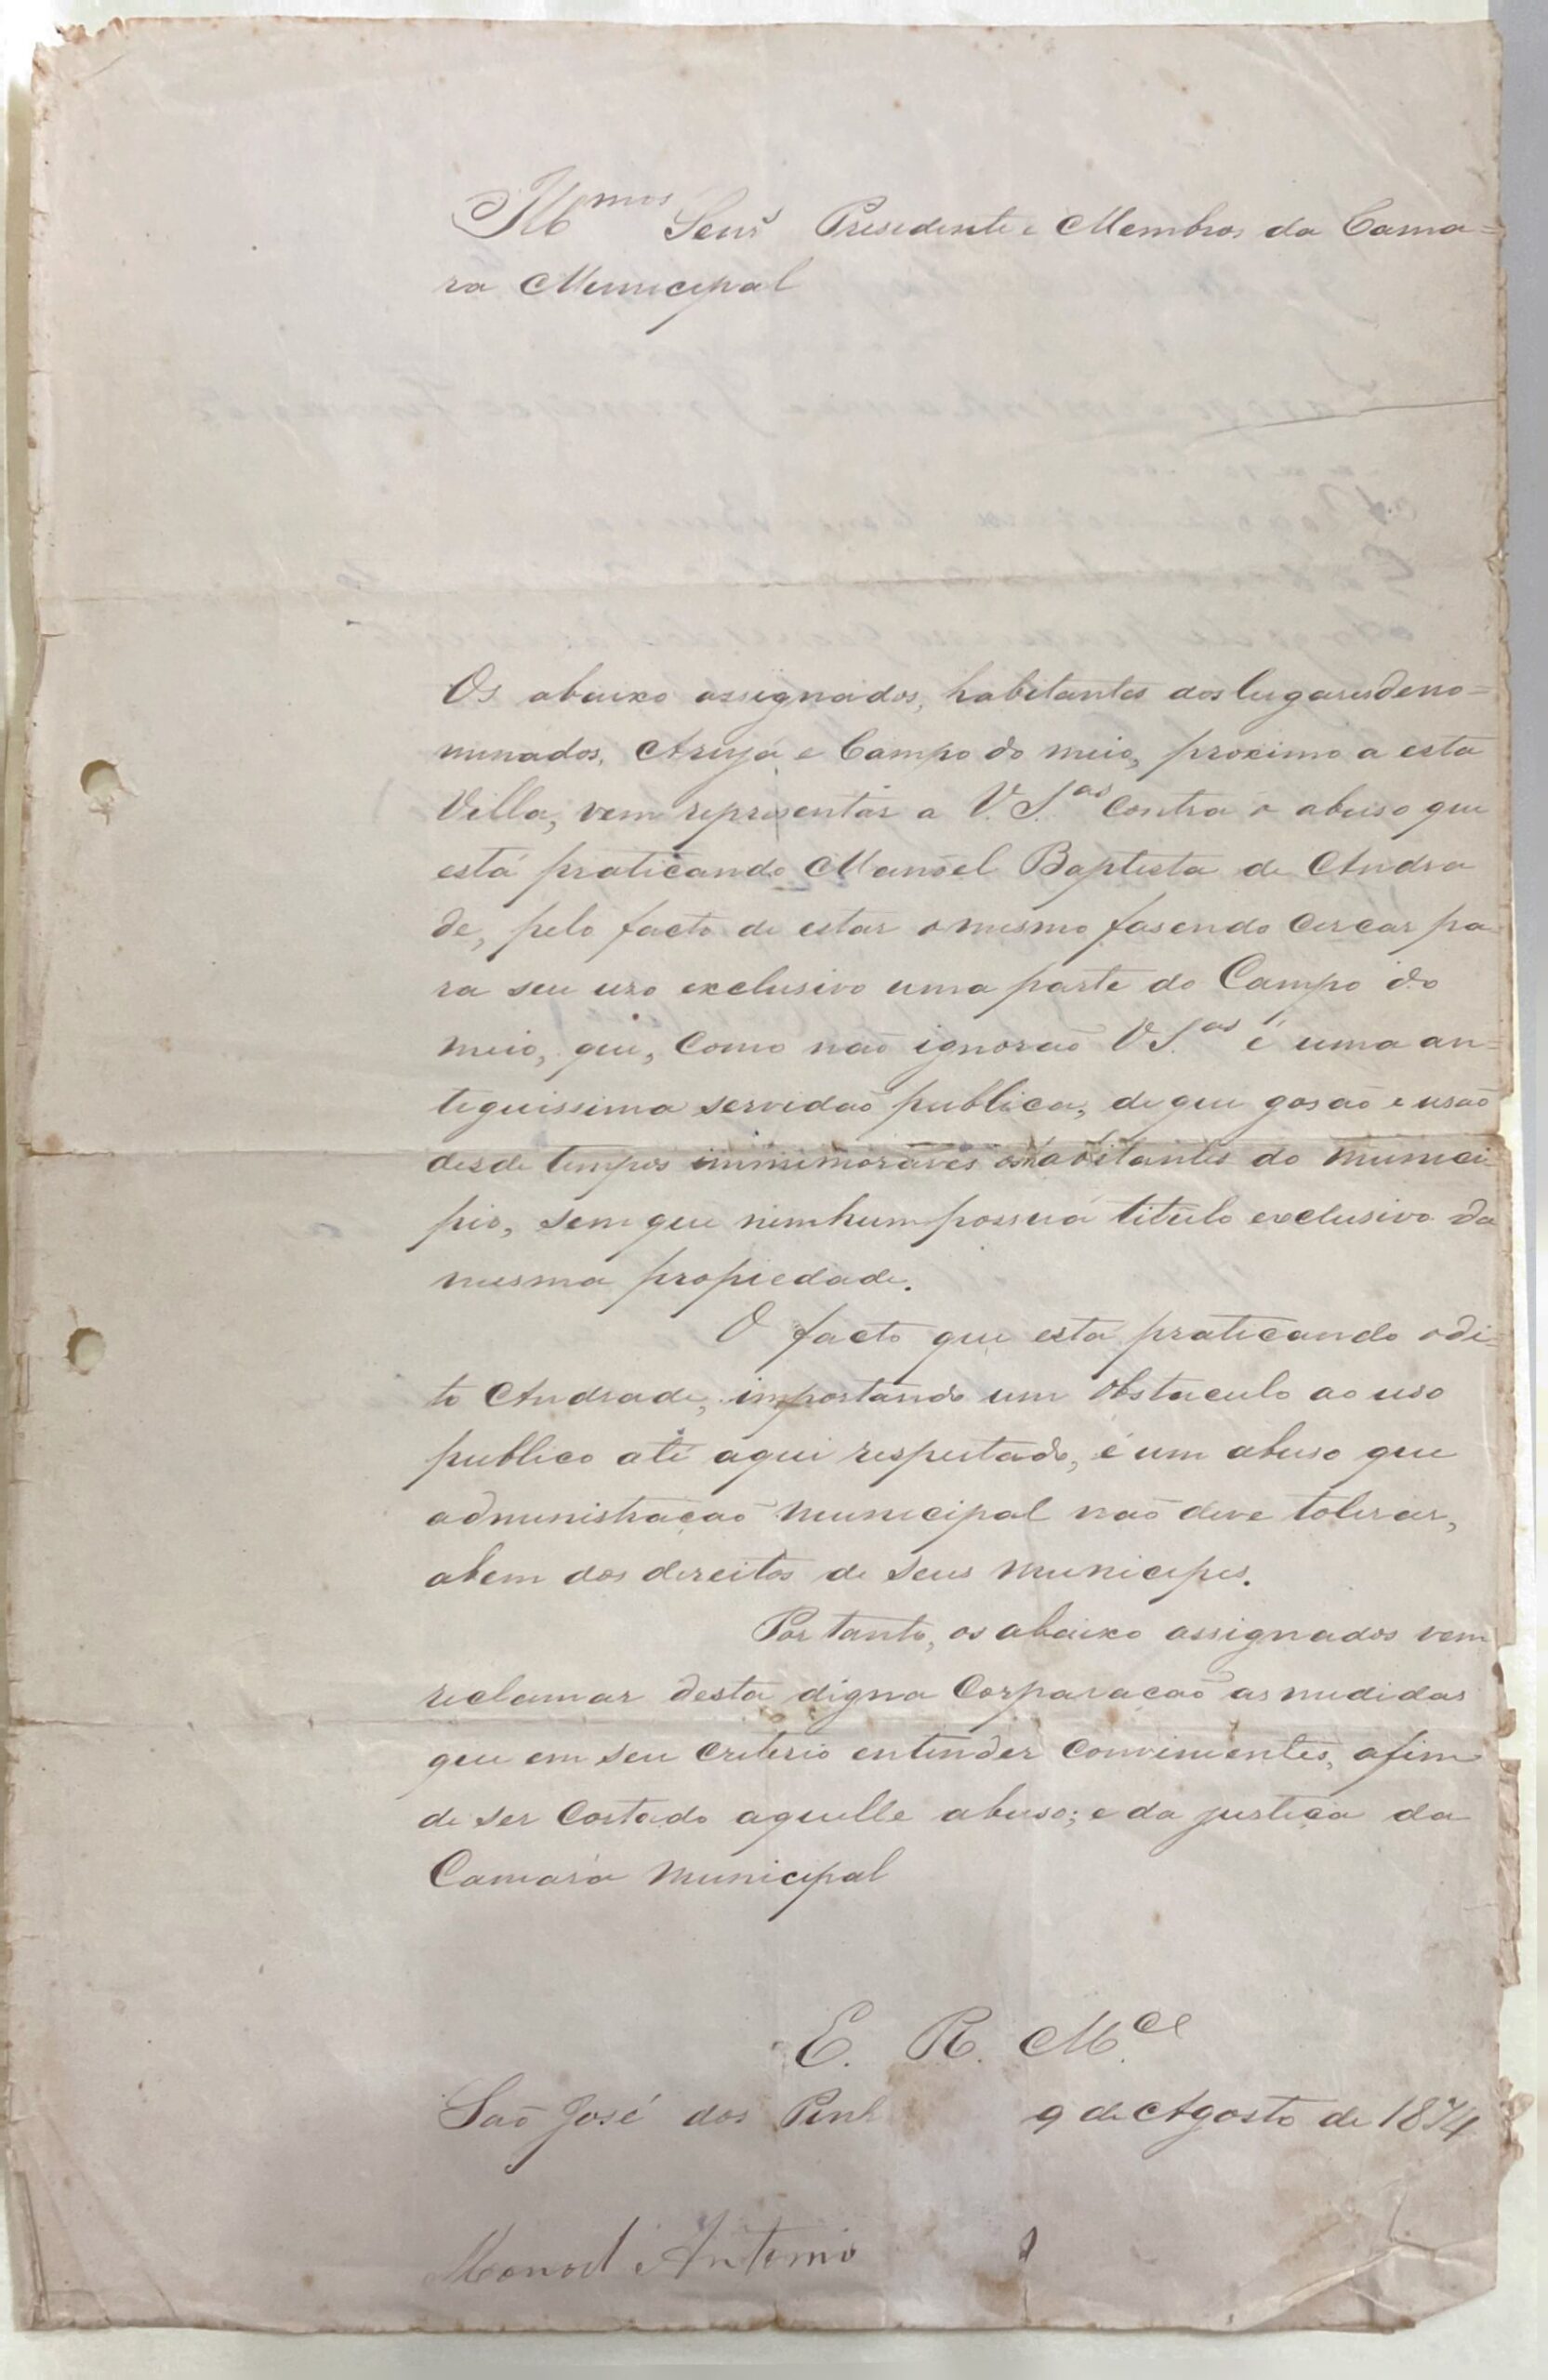 Illmos Senrs Presidente e Membros da Cama=
ra Municipal
Os abaixo assignados, habitantes dos lugares deno=
minados, Arujá e Campo do meio, proximo a esta
Villa, vem representar a V. S.as contra o abuso que
está praticando Manoel Baptista de Andra
de, pelo facto de estar o mesmo fasendo cercar pa
ra seu uzo exclusivo uma parte do Campo do
meio, que, como não ignorão V S.as é uma an=
tiguissima servidão publica, de que gosão e usão
desde tempos immemoraveis os habitantes do Munici
pio, sem que nimhum possua titulo exclusivo da
mesma propiedade.
O facto que está praticando o di=
to Andrade, importando um obstaculo ao uso
publico até aqui respeitado, é um abuso que
administração Municipal não deve tolerar,
abem dos direitos de seus Municipes.
Por tanto, os abaixo assignados vem
reclamar desta digna Corparação as medidas
que em seu criterio entender convinientes, afim
de ser Cortado aquelle abuso; e da justiça da
Camara Municipal
E. R. M.ce
São José dos Pinh 9 de Agosto de 1874
Manoel Antonio